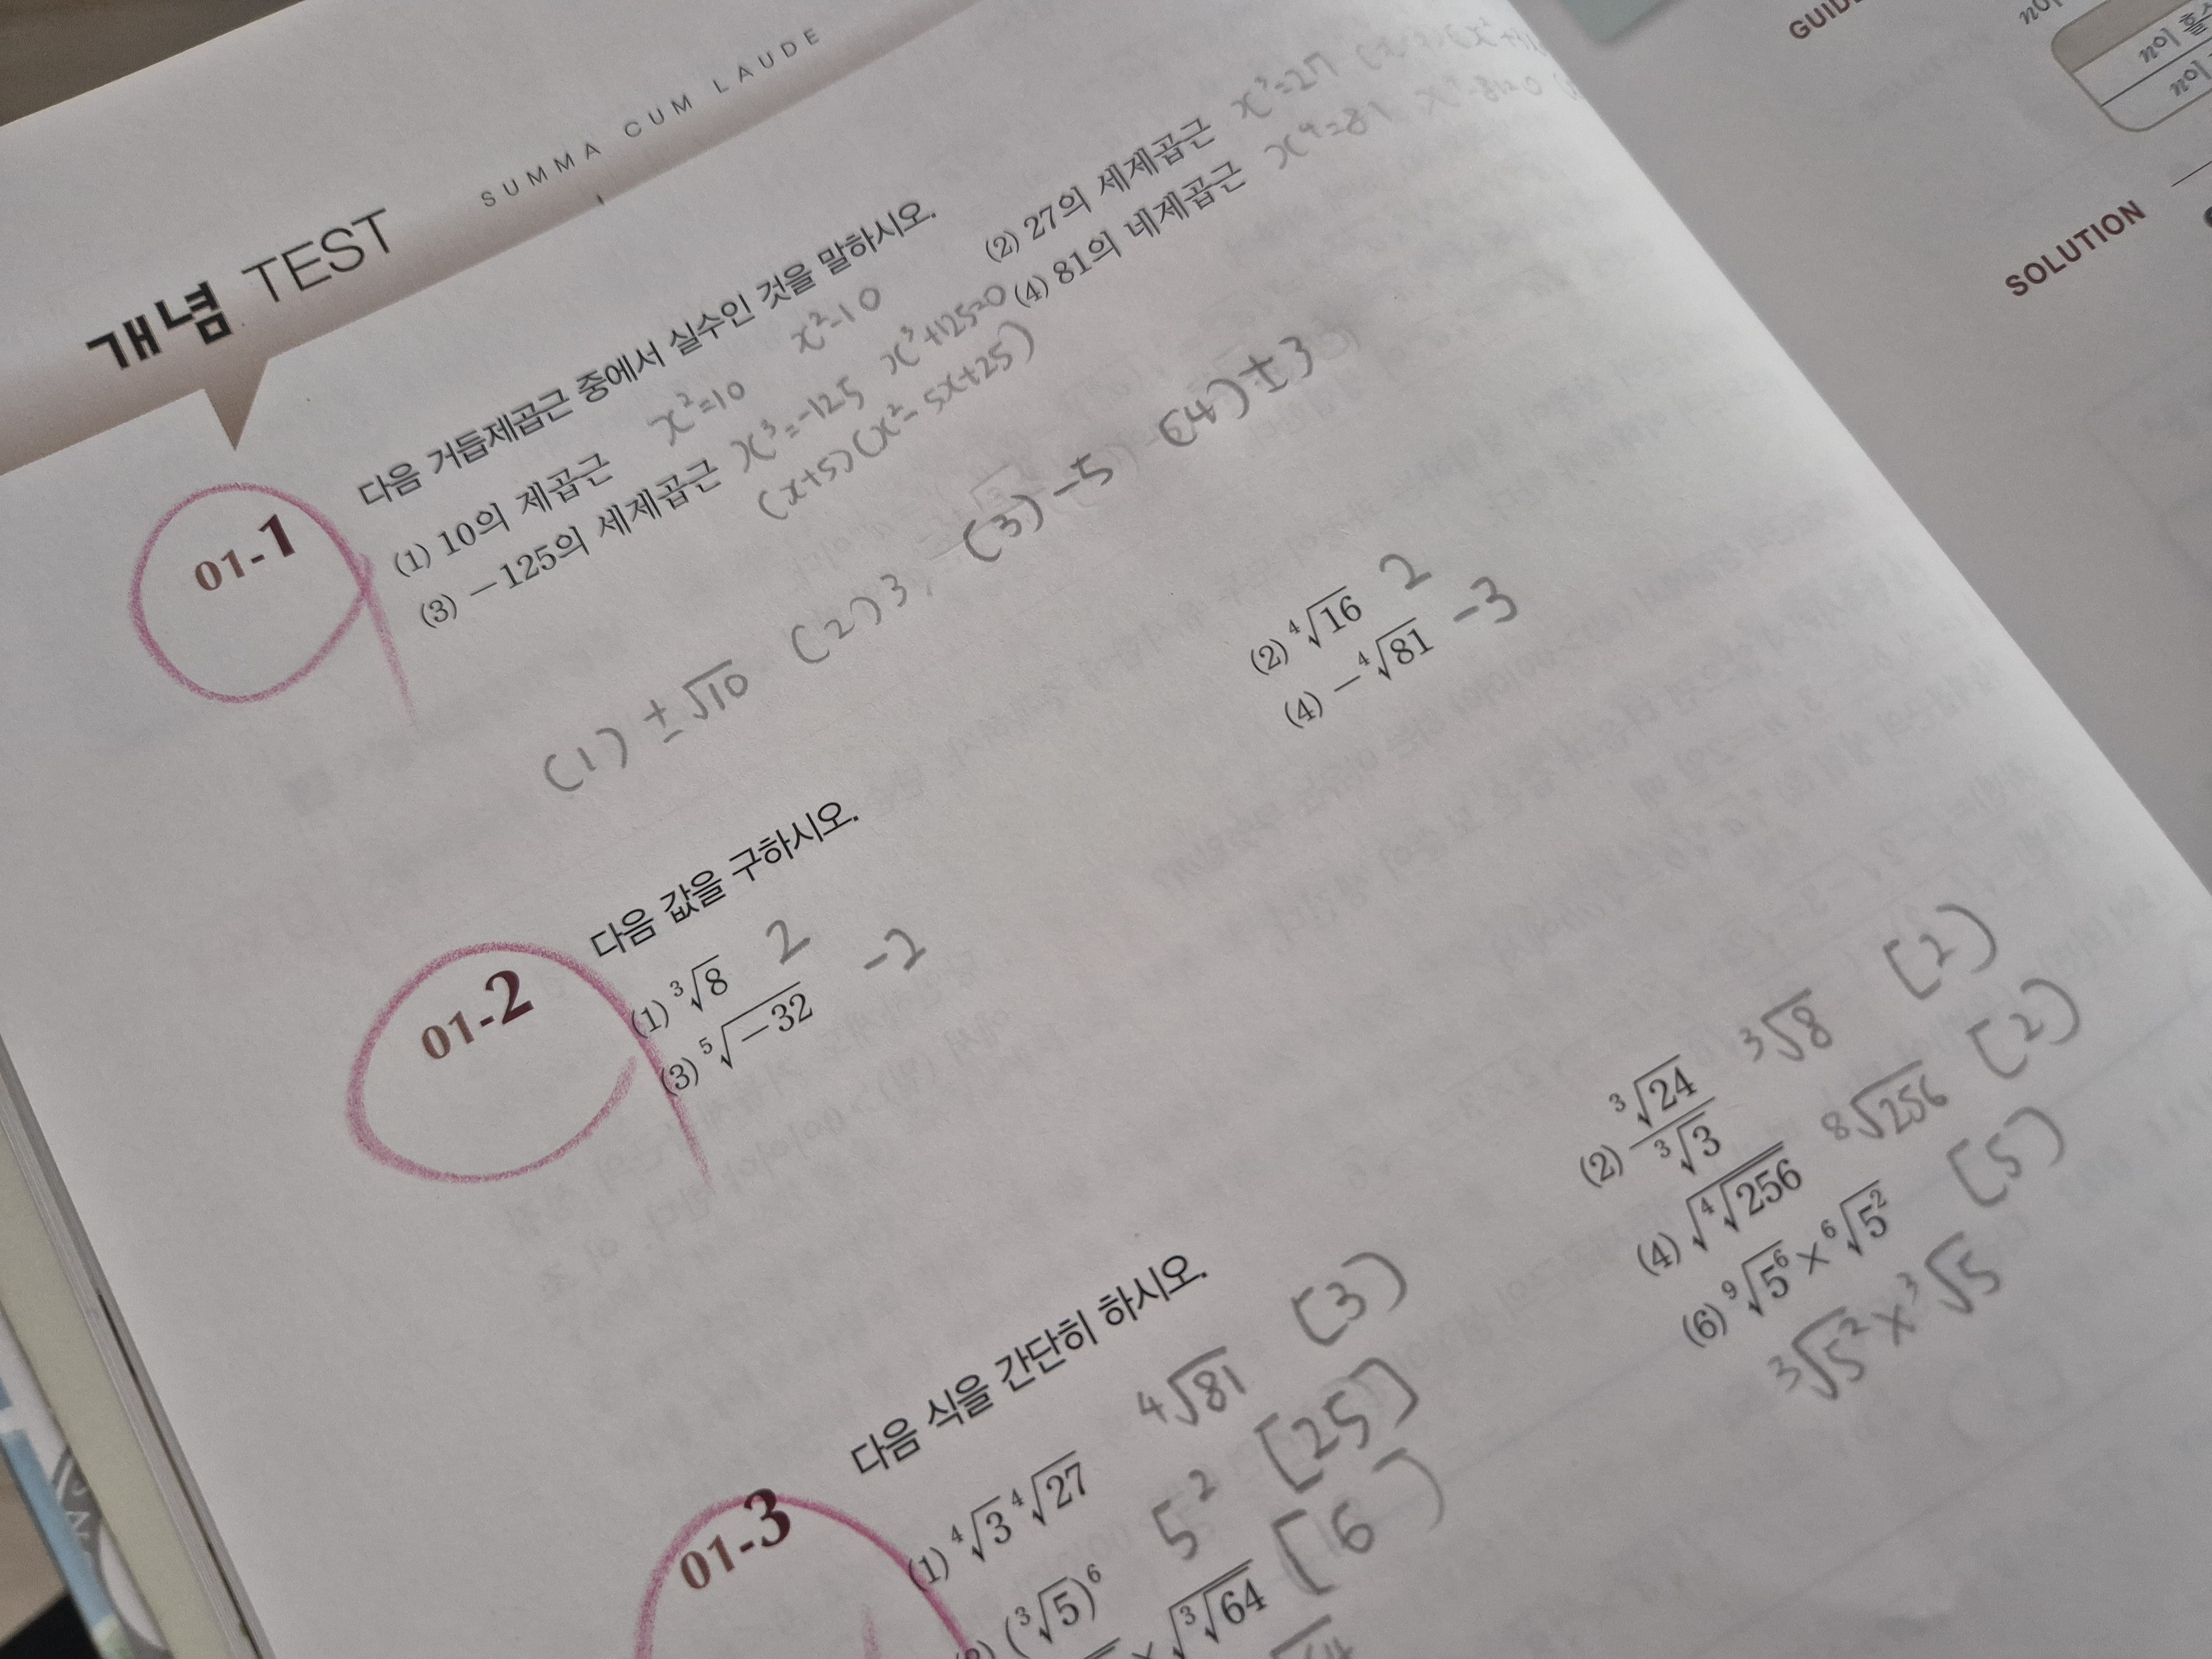 개념 TEST
SUMMA CUM LAUDE
01-1
다음 거듭제곱근 중에서 실수인 것을 말하시오.
(1) 10의 제곱근 x²=10 x²-10
(2) 27의 세제곱근 x³=27
(3) −125의 세제곱근 x³=-125 x³+125=0
(x+5)(x²-5x+25)
(4) 81의 네제곱근 x⁴=81 x⁴-81=0
(1) ±√10 (2) 3, (3) -5 (4) ±3
01-2
다음 값을 구하시오.
(1) ³√8 2
(2) ⁴√16 2
(3) ⁵√−32 -2
(4) −⁴√81 -3
01-3
다음 식을 간단히 하시오.
(1) ⁴√3 ⁴√27 4√81 (3)
(2) ³√24 / ³√3 3√8 [2)
(³√5)⁶ 5² [25]
(4) √⁴√256 8√256 [2)
×√³√64 [6]
(6) ⁹√5⁶ × ⁶√5² [5)
3√5² × ³√5
GUIDE
SOLUTION